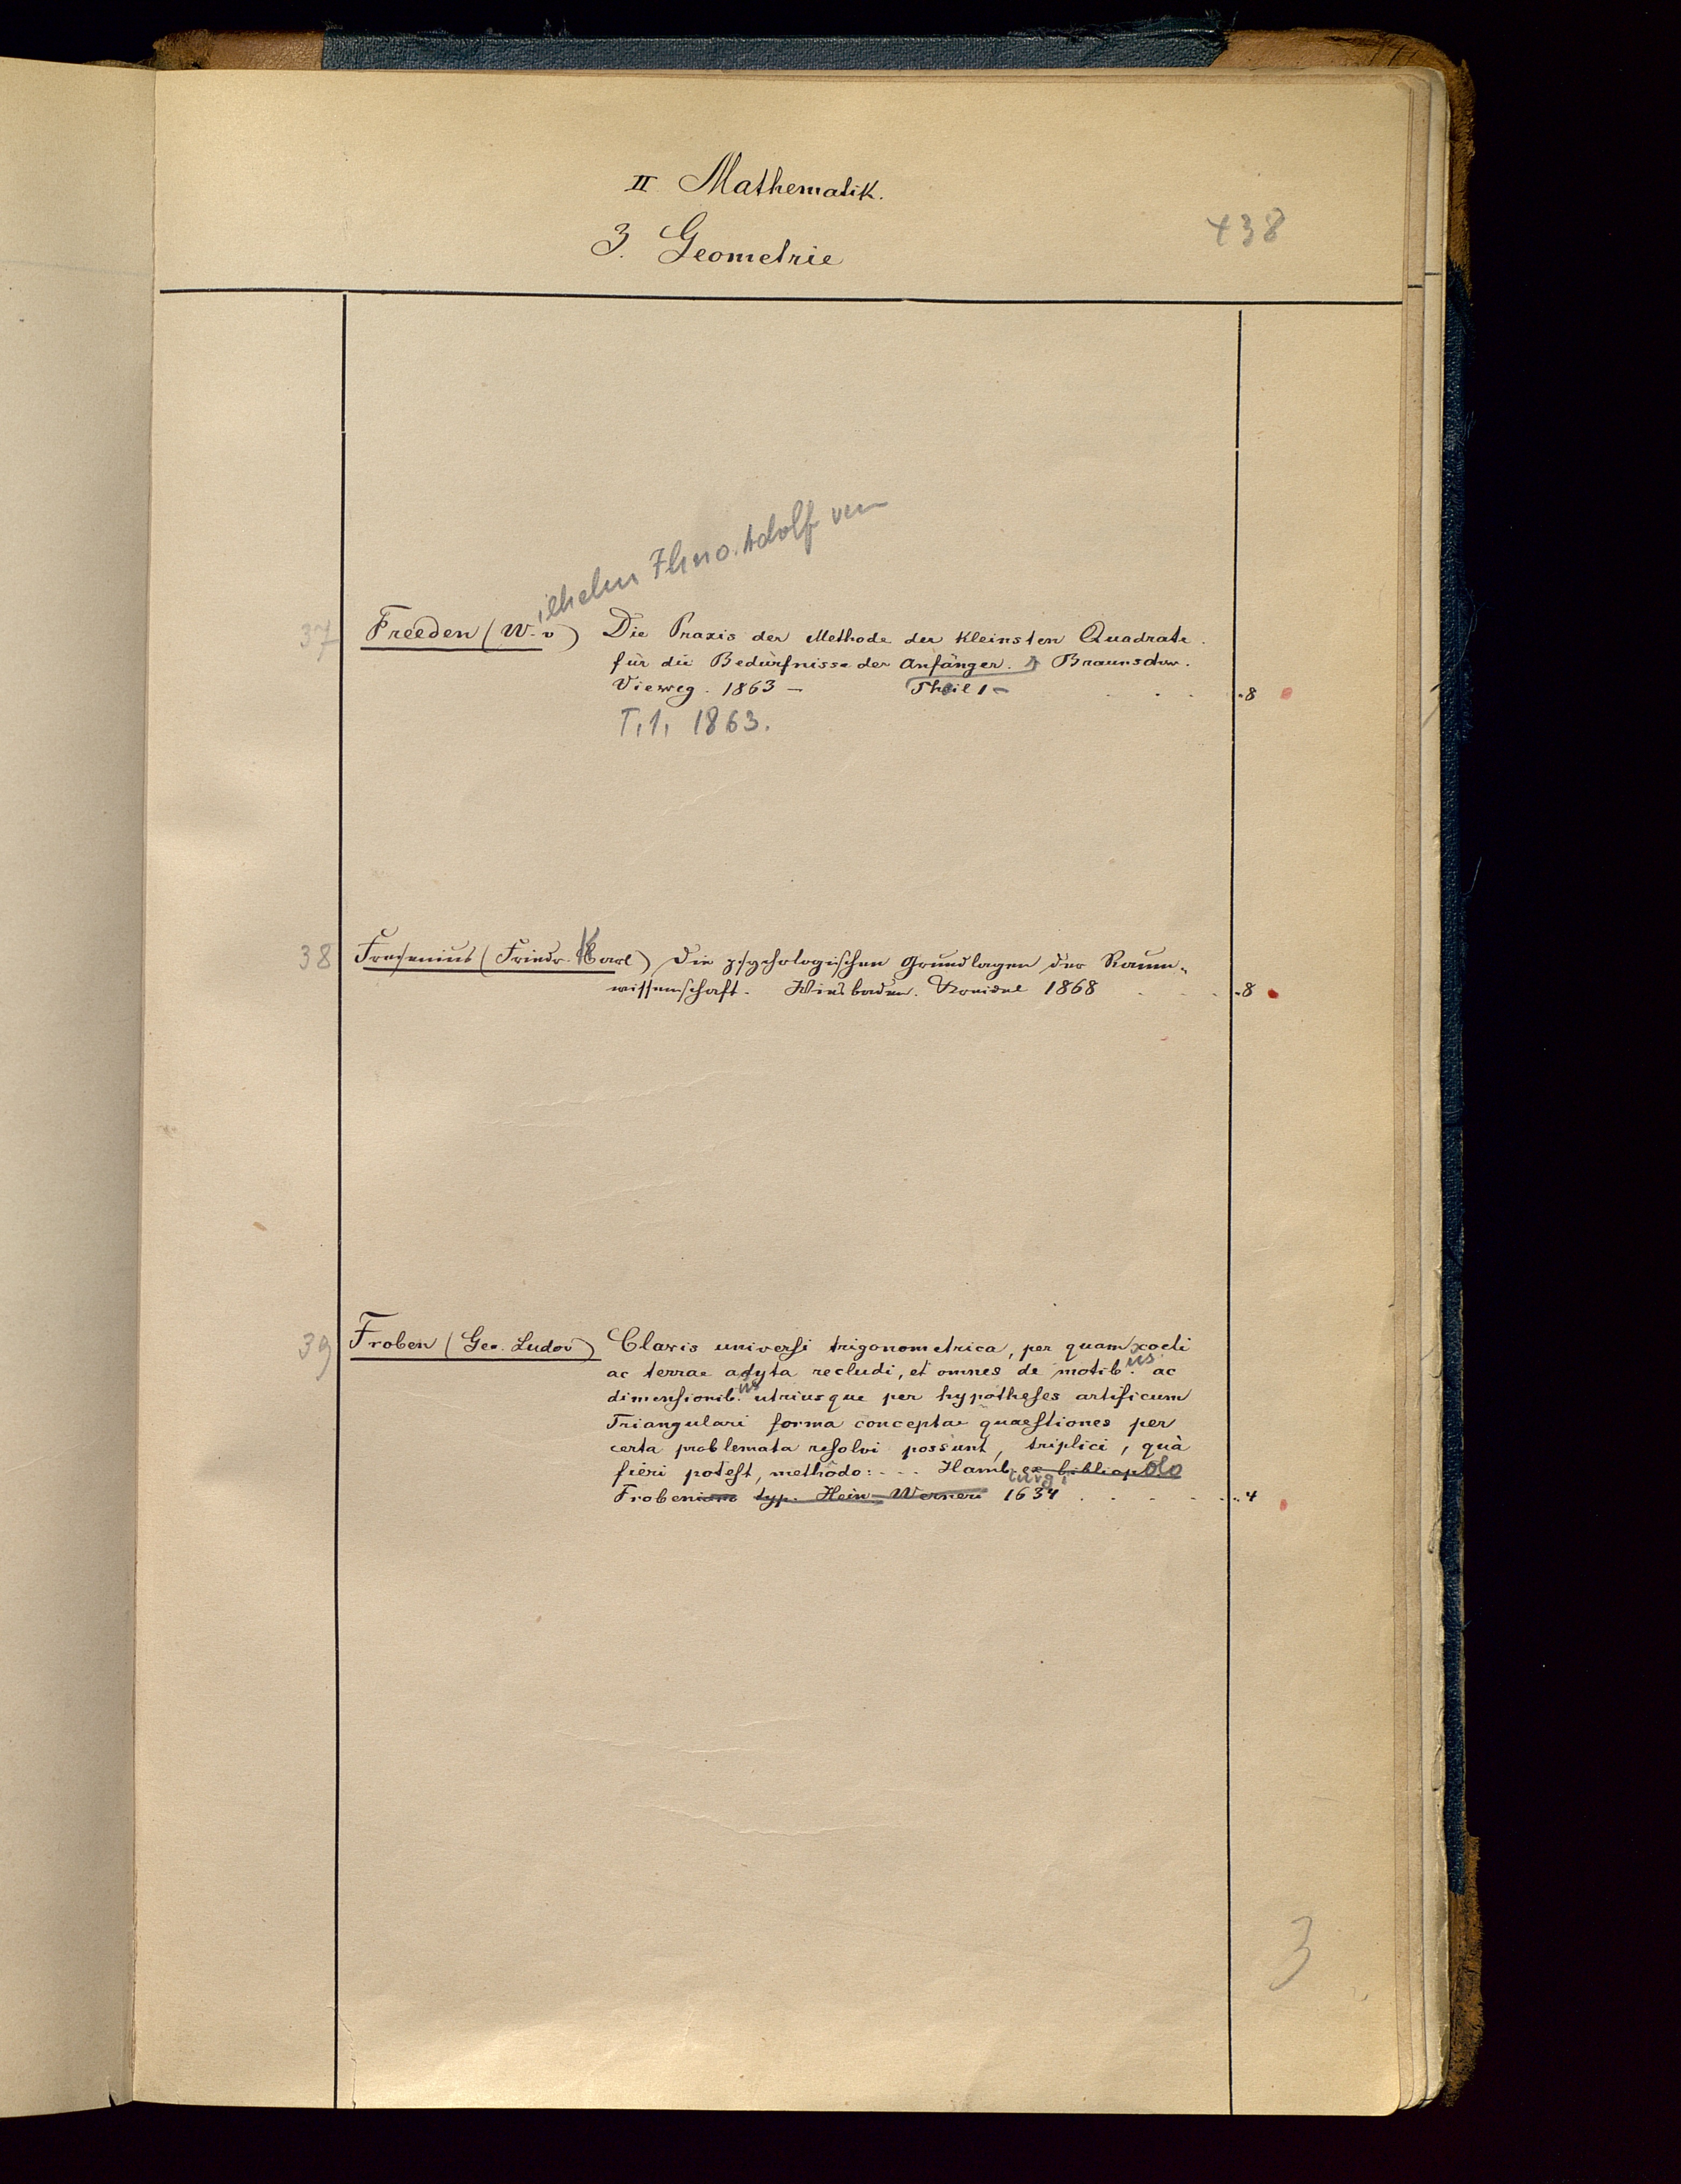 II Mathematik.
438
3. Geometrie
ilhelm Ihno Adolf von
37 Freeden (W. v) Die Praxis der Methode der kleinsten Quadrate.
für die Bedürfnisse der Anfänger. Braunschw.
Vieweg. 1863 – Theil 1 – . . . 8
T. 1. 1863.
38 Fresenius (Friedr. Karl) Die psychologischen Grundlagen der Raum-
wissenschaft. Wiesbaden. Kreidel 1868 . . . 8
39 Froben (Geo. Ludov) Clavis universi trigonometrica, per quam coeli
ac terrae adyta recludi, et omnes de motib.us ac
dimensionib.us utriusque per hypotheses artificum
Triangulari forma conceptae quaestiones per
certa problemata resolvi possunt, triplici, quà
fieri potest, methôdo: - - - Hamb. ex bibliopolo
urgi
Frobeniano typ. Hein. Werneri 1634 . . . . 4
3